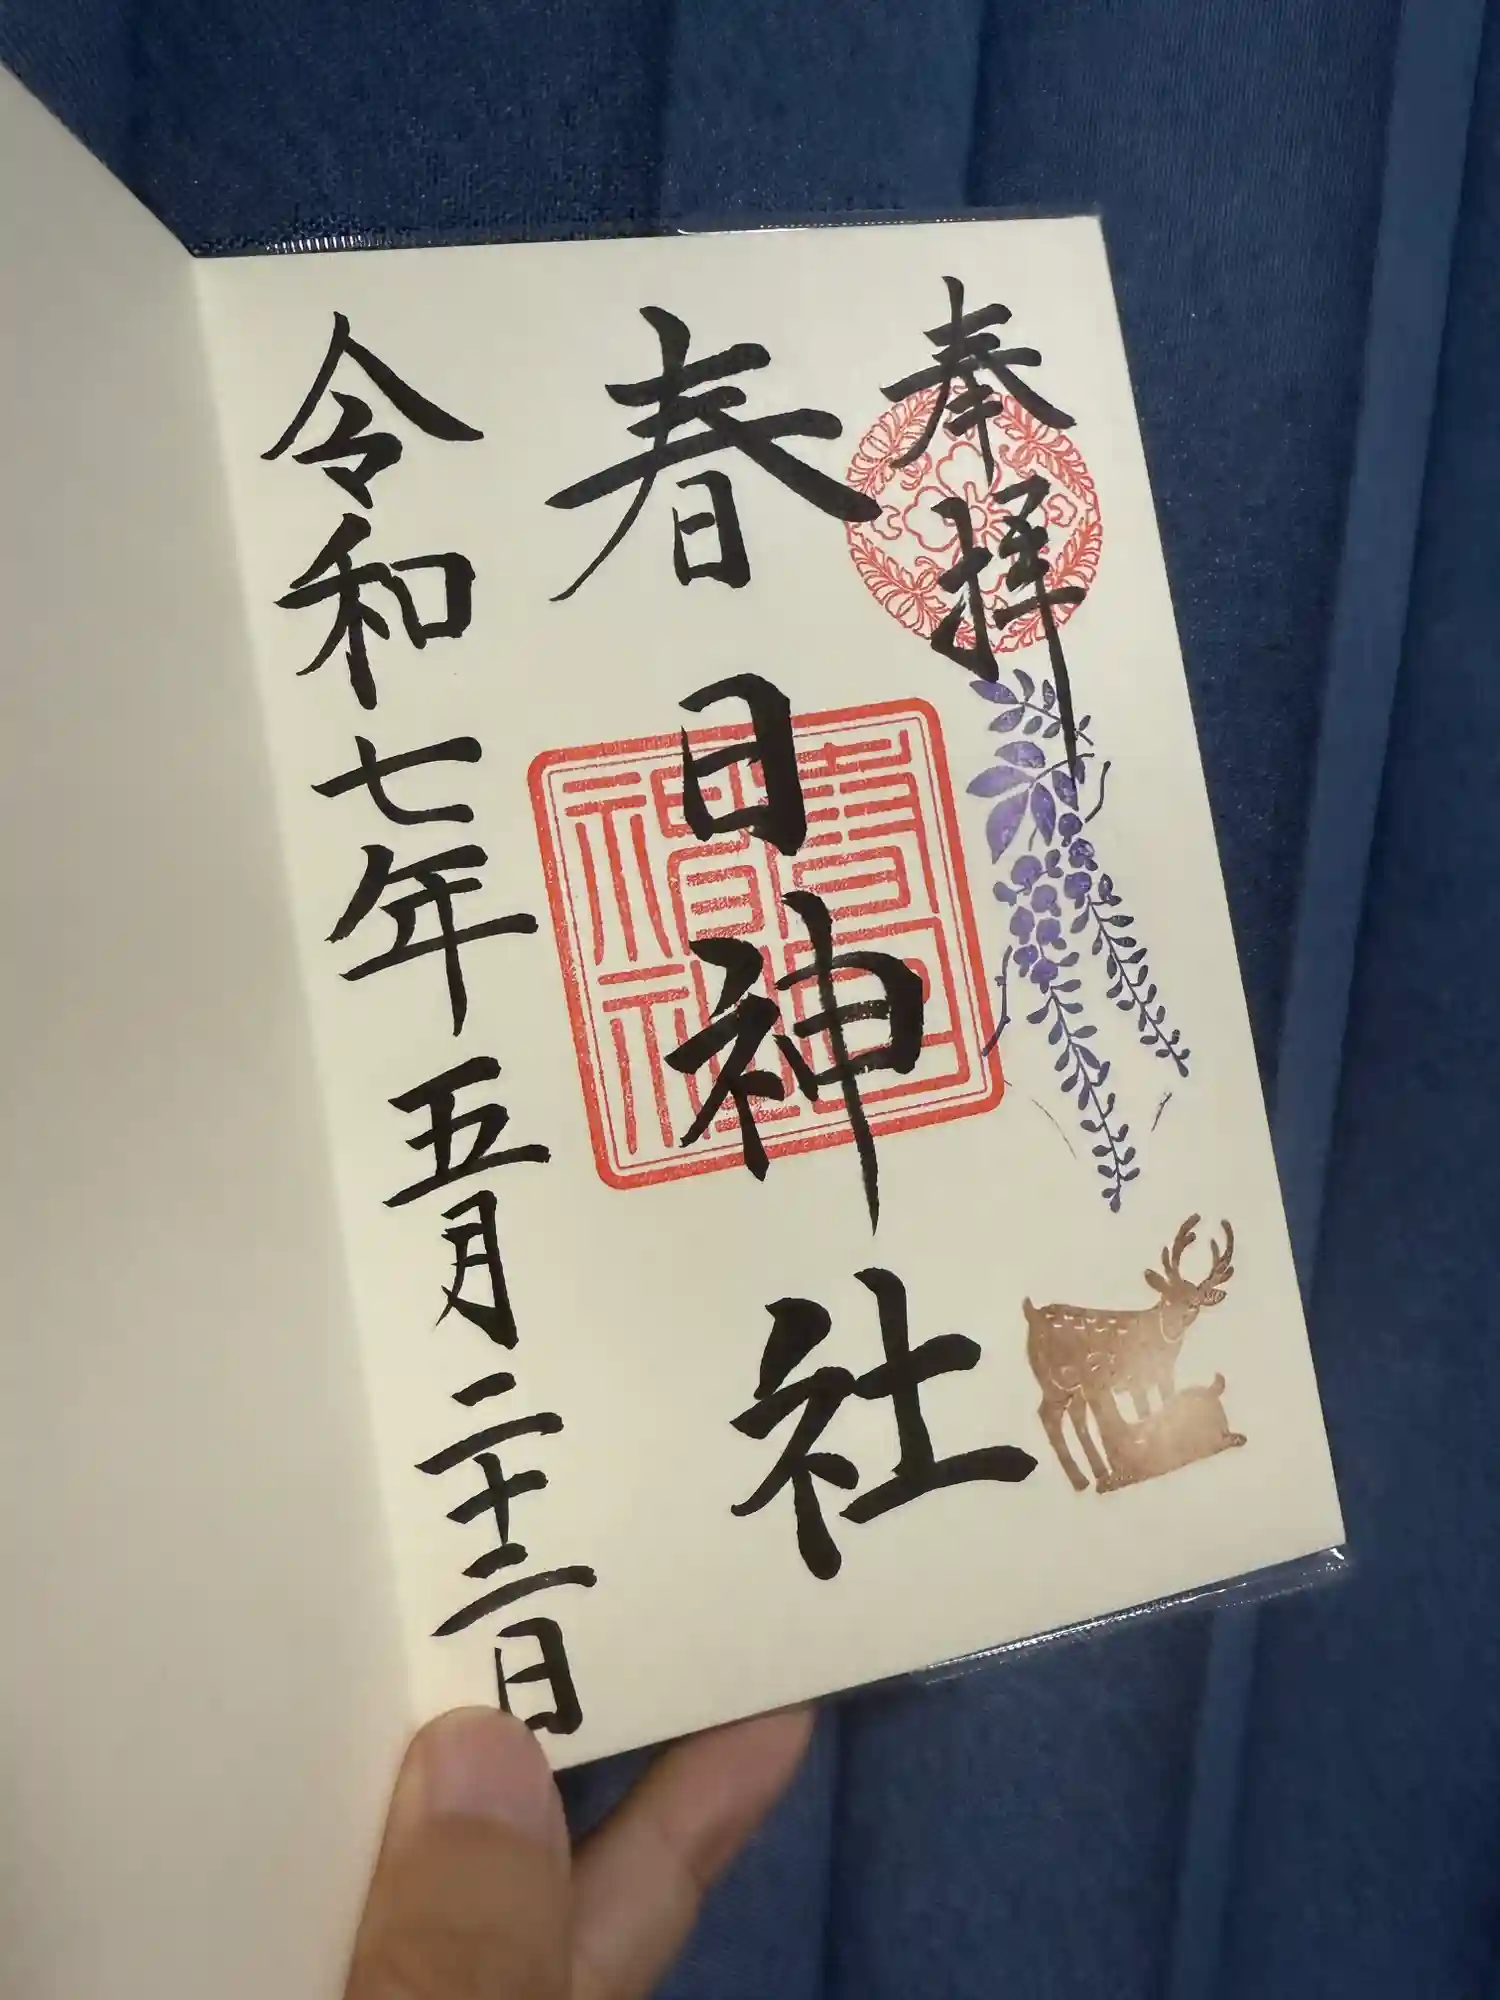 奉拝
春日神社
令和七年五月二十二日
春日神社